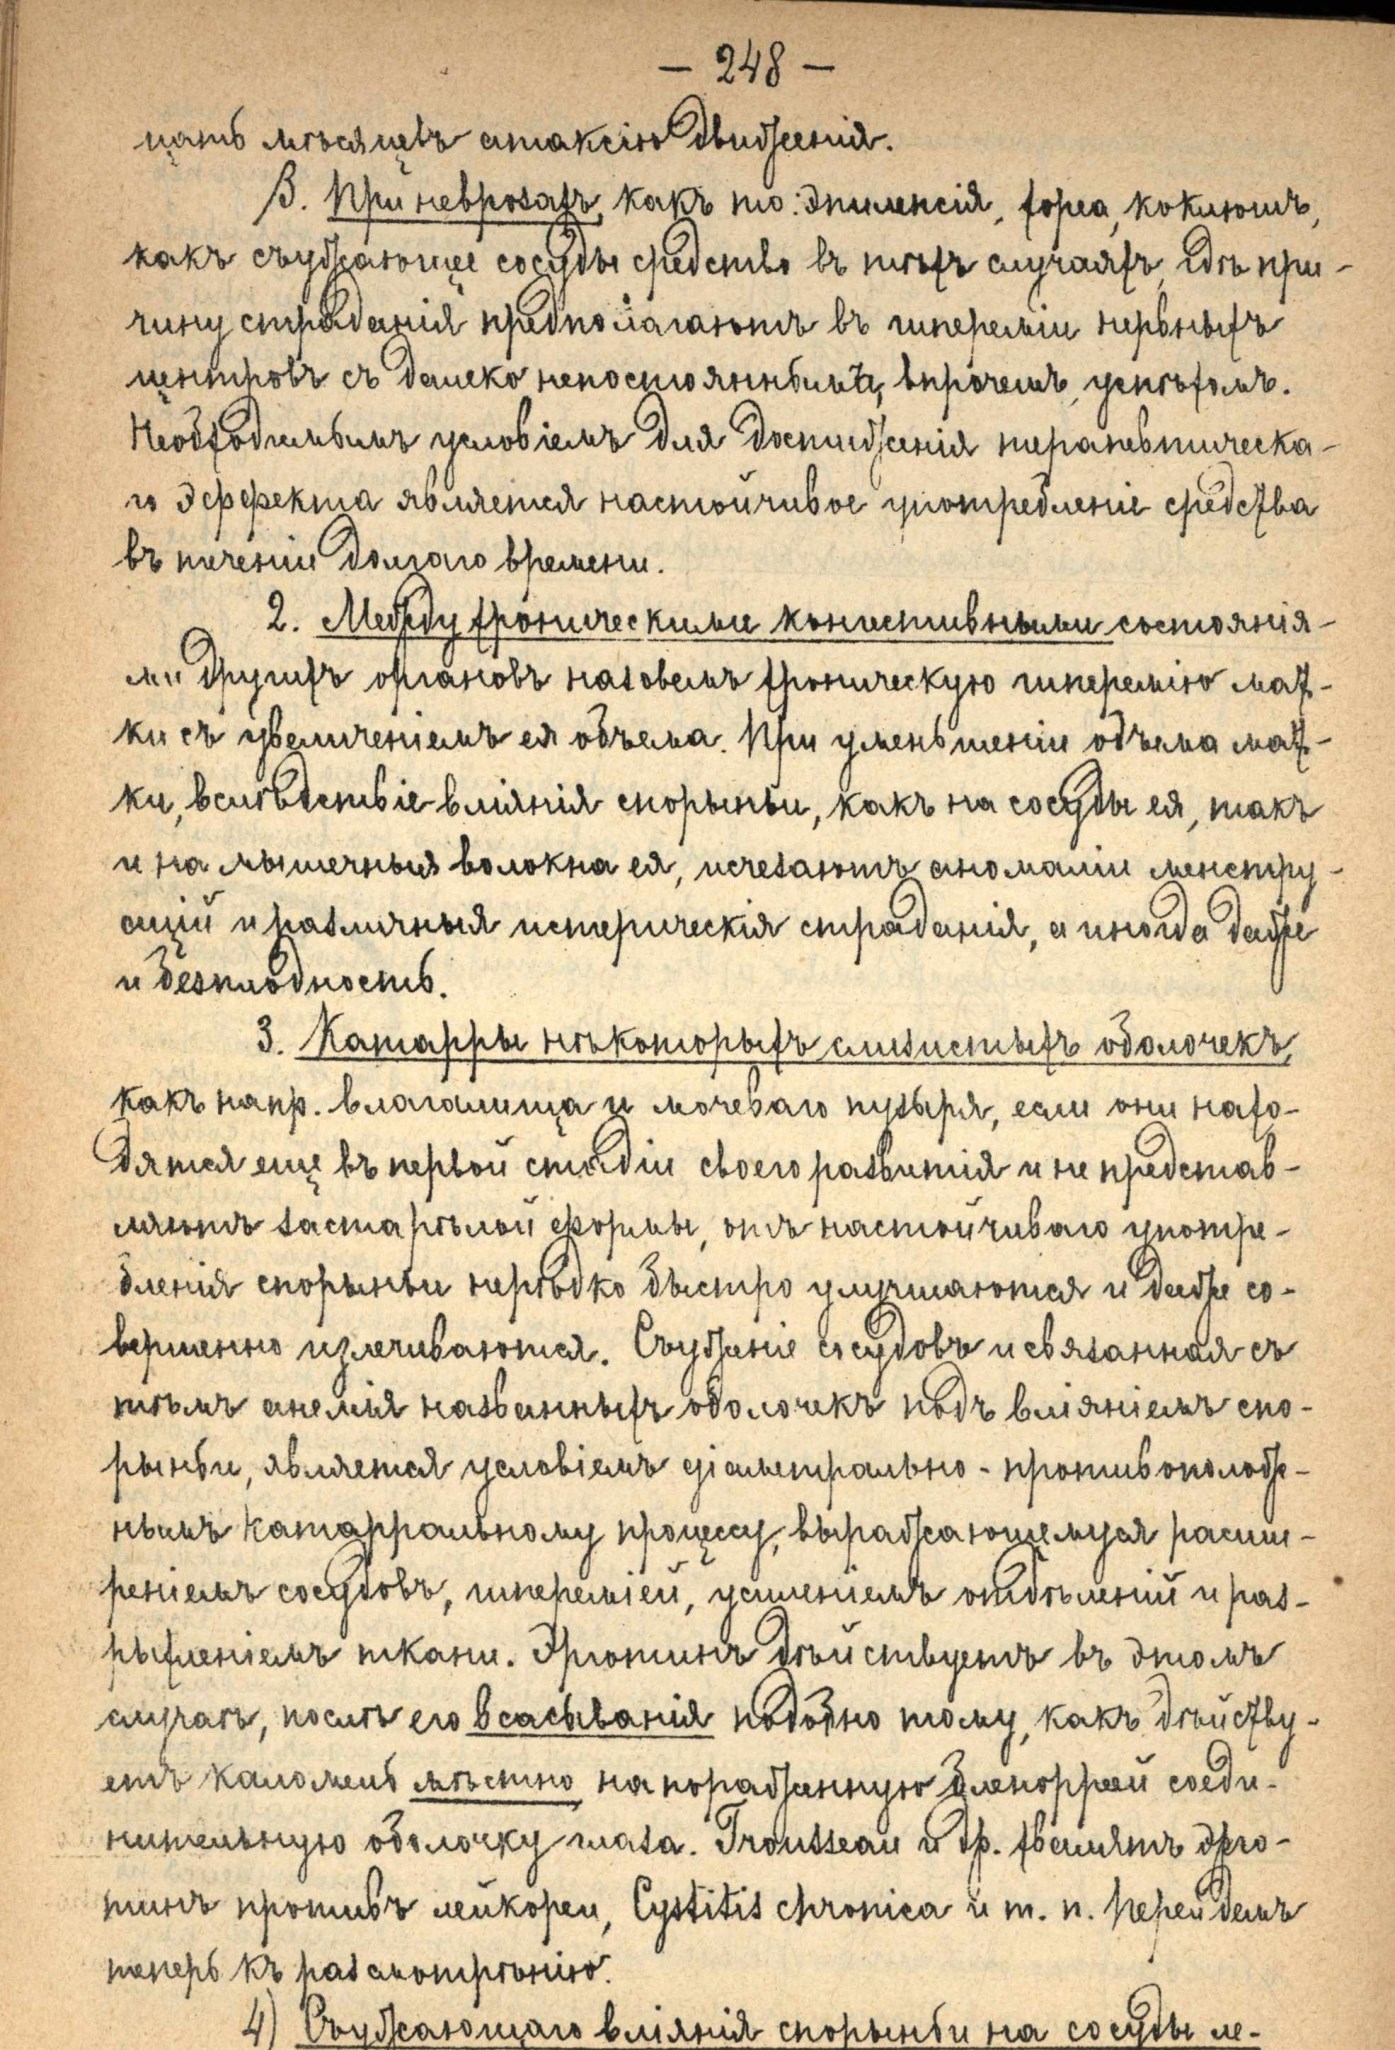 — 248 —
цать мѣсяцевъ атаксію движенія.
β. При неврозахъ, какъ то: эпилепсія, хорея, коклюшъ,
какъ съужающее сосуды средство въ тѣхъ случаяхъ, гдѣ при-
чину страданія предполагаютъ въ гипереміи нервныхъ
центровъ съ далеко непостояннымъ, впрочемъ, успѣхомъ.
Необходимымъ условіемъ для достиженія терапевтическа-
го эффекта является настойчивое употребленіе средства
въ теченіи долгаго времени.
2. Между хроническими конгестивными состоянія-
ми другихъ органовъ назовемъ хроническую гиперемію мат-
ки съ увеличеніемъ ея объема. При уменьшеніи объема мат-
ки, вслѣдствіе вліянія спорыньи, какъ на сосуды ея, такъ
и на мышечныя волокна ея, исчезаютъ аномаліи менстру-
ацій и различныя истерическія страданія, а иногда даже
и безплодность.
3. Катарры нѣкоторыхъ слизистыхъ оболочекъ,
какъ напр. влагалища и мочеваго пузыря, если они нахо-
дятся еще въ первой стадіи своего развитія и не представ-
ляютъ застарѣлой формы, отъ настойчиваго употре-
бленія спорыньи нерѣдко быстро улучшаются и даже со-
вершенно излечиваются. Съуженіе сосудовъ и связанная съ
тѣмъ анемія названныхъ оболочекъ подъ вліяніемъ спо-
рыньи, является условіемъ діаметрально-противополож-
нымъ катарральному процессу, выражающемуся расши-
реніемъ сосудовъ, гипереміей, усиленіемъ отдѣленій и раз-
рыхленіемъ ткани. Эрготинъ дѣйствуетъ въ этомъ
случаѣ, послѣ его всасыванія подобно тому, какъ дѣйству-
етъ каломель мѣстно на пораженную бленорреей соеди-
нительную оболочку глаза. Trousseau и др. хвалятъ эрго-
тинъ противъ лейкореи, Cystitis chronica и т. п. Перейдемъ
теперь къ разсмотрѣнію.
4) Съужающаго вліянія спорыньи на сосуды ле-